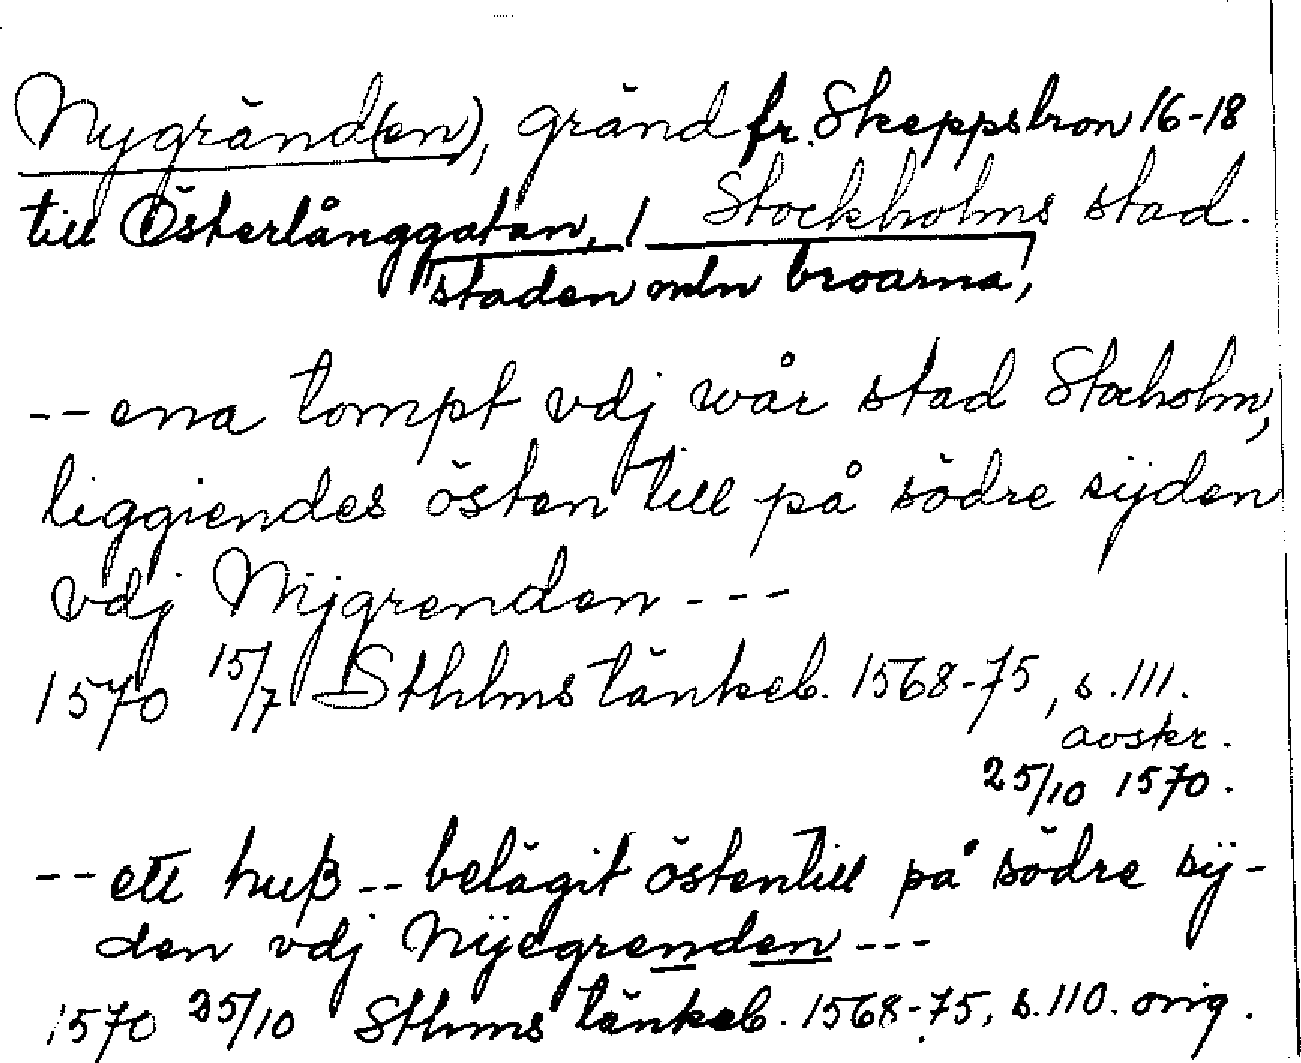 Nygränd(en), gränd fr. Skeppsbron 16-18
till Österlånggatan, / Stockholms stad.
staden mln broarna,
-- ena tompt vdj wår stad Stocholm,
liggiendes östen till på södre sijden
vdj Nijgrenden ---
1570 15/7 Sthlms tänkeb. 1568-75, s. 111.
avskr.
25/10 1570.
-- ett huß -- belägit östentill på södre sij-
den vdj Nijegrenden ---
1570 25/10 Sthlms tänkeb. 1568-75, s. 110. orig.